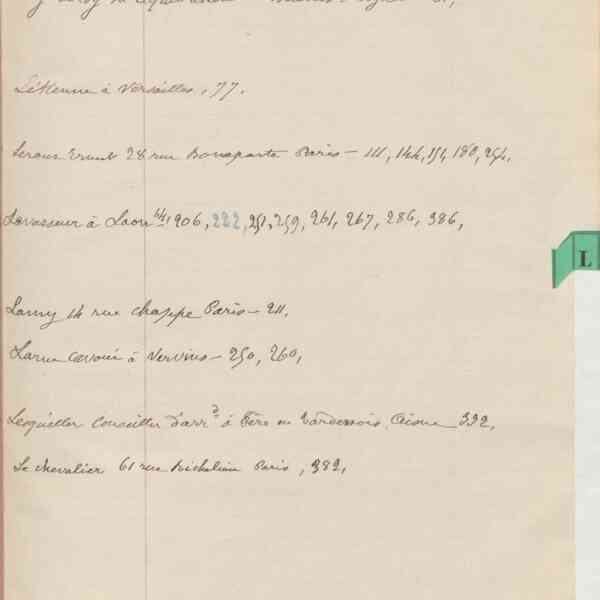 Létienne à Versailles, 77.
Leroux Ernest 28 rue Bonaparte Paris – 111, 144, 154, 180, 254,
Levasseur à Laon 64, 206, 222, 251, 259, 261, 267, 286, 386,
L
Lamy 14 rue Chappe Paris – 211,
Larue avoué à Vervins – 250, 260,
Lesquiller Conseiller d'arrd à Fère en Tardenois Aisne 332,
Le Chevalier 61 rue Richelieu Paris, 382,